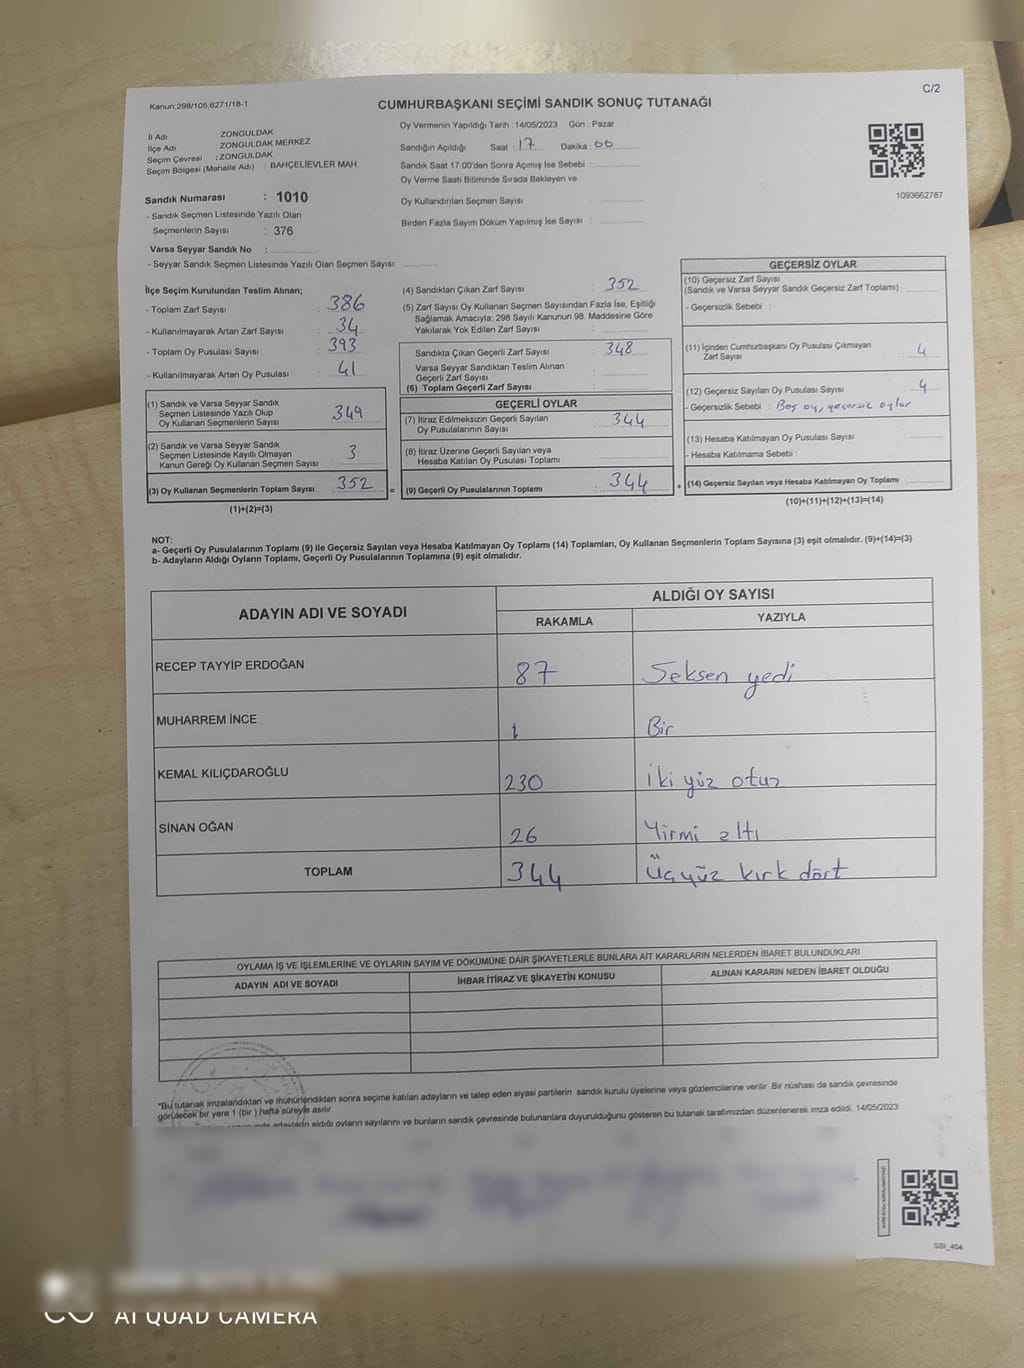 Kanun;298/105;6271/18-1
C/2
CUMHURBAŞKANI SEÇİMİ SANDIK SONUÇ TUTANAĞI
İl Adı : ZONGULDAK
İlçe Adı : ZONGULDAK MERKEZ
Seçim Çevresi : ZONGULDAK
Seçim Bölgesi (Mahalle Adı) : BAHÇELİEVLER MAH.
Sandık Numarası : 1010
- Sandık Seçmen Listesinde Yazılı Olan
Seçmenlerin Sayısı : 376
Varsa Seyyar Sandık No :
- Seyyar Sandık Seçmen Listesinde Yazılı Olan Seçmen Sayısı:
Oy Vermenin Yapıldığı Tarih :14/05/2023 Gün : Pazar
Sandığın Açıldığı Saat : 17 Dakika : 00
Sandık Saat 17:00'den Sonra Açımış İse Sebebi :
Oy Verme Saati Bitiminde Sırada Bekleyen ve
Oy Kullandırılan Seçmen Sayısı :
Birden Fazla Sayım Döküm Yapılmış İse Sayısı :
1093662787
İlçe Seçim Kurulundan Teslim Alınan;
- Toplam Zarf Sayısı : 386
- Kullanılmayarak Artan Zarf Sayısı : 34
- Toplam Oy Pusulası Sayısı : 393
- Kullanılmayarak Artan Oy Pusulası : 41
(1) Sandık ve Varsa Seyyar Sandık
Seçmen Listesinde Yazılı Olup
Oy Kullanan Seçmenlerin Sayısı : 349
(2) Sandık ve Varsa Seyyar Sandık
Seçmen Listesinde Kayıtlı Olmayan
Kanun Gereği Oy Kullanan Seçmen Sayısı : 3
(3) Oy Kullanan Seçmenlerin Toplam Sayısı : 352
(1)+(2)=(3)
=
(4) Sandıktan Çıkan Zarf Sayısı : 352
(5) Zarf Sayısı Oy Kullanan Seçmen Sayısından Fazla İse, Eşitliği
Sağlamak Amacıyla; 298 Sayılı Kanunun 98. Maddesine Göre
Yakılarak Yok Edilen Zarf Sayısı :
Sandıkta Çıkan Geçerli Zarf Sayısı : 348
Varsa Seyyar Sandıktan Teslim Alınan
Geçerli Zarf Sayısı :
(6) Toplam Geçerli Zarf Sayısı :
GEÇERLİ OYLAR
(7) İtiraz Edilmeksizin Geçerli Sayılan
Oy Pusulalarının Sayısı : 344
(8) İtiraz Üzerine Geçerli Sayılan veya
Hesaba Katılan Oy Pusulası Toplamı :
(9) Geçerli Oy Pusulalarının Toplamı : 344
+
GEÇERSİZ OYLAR
(10) Geçersiz Zarf Sayısı
(Sandık ve Varsa Seyyar Sandık Geçersiz Zarf Toplamı) :
- Geçersizlik Sebebi :
(11) İçinden Cumhurbaşkanı Oy Pusulası Çıkmayan
Zarf Sayısı : 4
(12) Geçersiz Sayılan Oy Pusulası Sayısı : 4
- Geçersizlik Sebebi : Boş oy, geçersiz oylar
(13) Hesaba Katılmayan Oy Pusulası Sayısı :
- Hesaba Katılmama Sebebi :
(14) Geçersiz Sayılan veya Hesaba Katılmayan Oy Toplamı :
(10)+(11)+(12)+(13)=(14)
NOT:
a- Geçerli Oy Pusulalarının Toplamı (9) ile Geçersiz Sayılan veya Hesaba Katılmayan Oy Toplamı (14) Toplamları, Oy Kullanan Seçmenlerin Toplam Sayısına (3) eşit olmalıdır. (9)+(14)=(3)
b- Adayların Aldığı Oyların Toplamı, Geçerli Oy Pusulalarının Toplamına (9) eşit olmalıdır.
ADAYIN ADI VE SOYADI
ALDIĞI OY SAYISI
RAKAMLA YAZIYLA
RECEP TAYYİP ERDOĞAN 87 Seksen yedi
MUHARREM İNCE 1 Bir
KEMAL KILIÇDAROĞLU 230 İki yüz otuz
SİNAN OĞAN 26 Yirmi altı
TOPLAM 344 Üçyüz kırk dört
OYLAMA İŞ VE İŞLEMLERİNE VE OYLARIN SAYIM VE DÖKÜMÜNE DAİR ŞİKAYETLERLE BUNLARA AİT KARARLARIN NELERDEN İBARET BULUNDUKLARI
ADAYIN ADI VE SOYADI İHBAR İTİRAZ VE ŞİKAYETİN KONUSU ALINAN KARARIN NEDEN İBARET OLDUĞU
*Bu tutanak imzalandıktan ve mühürlendikten sonra seçime katılan adayların ve talep eden siyasi partilerin sandık kurulu üyelerine veya gözlemcilerine verilir. Bir nüshası da sandık çevresinde
görülecek bir yere 1 (bir ) hafta süreyle asılır.
adayların aldığı oyların sayılarını ve bunların sandık çevresinde bulunanlara duyurulduğunu gösteren bu tutanak tarafımızdan düzenlenerek imza edildi. 14/05/2023
SSI_404
AI QUAD CAMERA